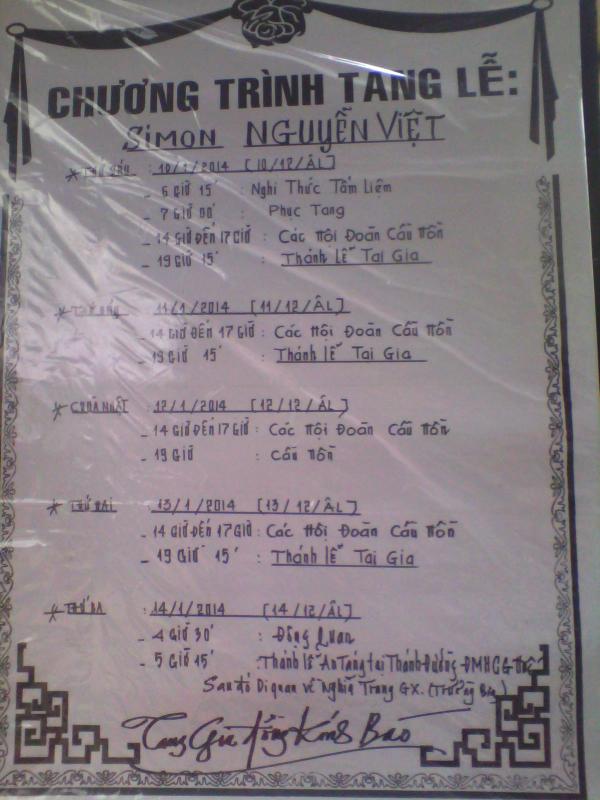 CHƯƠNG TRÌNH TANG LỄ:
SIMON NGUYỄN VIỆT
* THỨ SÁU : 10/1/2014 [10/12/ÂL]
- 6 GIỜ 15' : Nghi Thức Tẩm Liệm
- 7 GIỜ 00' : Phục Tang
- 14 GIỜ ĐẾN 17 GIỜ : Các Hội Đoàn Cầu Hồn
- 19 GIỜ 15' : Thánh Lễ Tại Gia
* THỨ BẢY : 11/1/2014 [11/12/ÂL]
- 14 GIỜ ĐẾN 17 GIỜ : Các Hội Đoàn Cầu Hồn
- 19 GIỜ 15' : Thánh lễ Tại Gia
* CHÚA NHẬT : 12/1/2014 [12/12/ÂL]
- 14 GIỜ ĐẾN 17 GIỜ : Các Hội Đoàn Cầu Hồn
- 19 GIỜ : Cầu Hồn
* THỨ HAI : 13/1/2014 [13/12/ÂL]
- 14 GIỜ ĐẾN 17 GIỜ : Các Hội Đoàn Cầu Hồn
- 19 GIỜ 15' : Thánh Lễ Tại Gia
* THỨ BA : 14/1/2014 [14/12/ÂL]
- 4 GIỜ 30' : Động Quan
- 5 GIỜ 15' : Thánh lễ An Táng tại Thánh Đường ĐMHCG
Sau đó Di quan về Nghĩa Trang GX.
Tang Gia Đồng Kính Báo